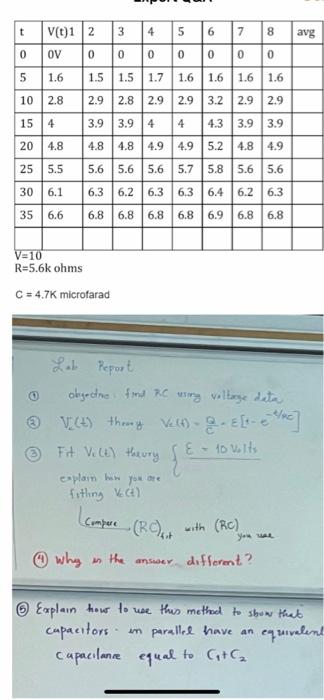 t V(t)1 2 3 4 5 6 7 8 avg
0 0V 0 0 0 0 0 0 0
5 1.6 1.5 1.5 1.7 1.6 1.6 1.6 1.6
10 2.8 2.9 2.8 2.9 2.9 3.2 2.9 2.9
15 4 3.9 3.9 4 4 4.3 3.9 3.9
20 4.8 4.8 4.8 4.9 4.9 5.2 4.8 4.9
25 5.5 5.6 5.6 5.6 5.7 5.8 5.6 5.6
30 6.1 6.3 6.2 6.3 6.3 6.4 6.2 6.3
35 6.6 6.8 6.8 6.8 6.8 6.9 6.8 6.8
V=10
R=5.6k ohms
C = 4.7K microfarad
Lab Report
① objective: find RC using voltage data
② Vc(t) theory Vc(t) = Q/C = ε[1 - e^-t/RC]
③ Fit Vc(t) theory { ε = 10 Volts
explain how you are
fitting Vc(t)
Compare (RC)fit with (RC) you use
④ Why is the answer different?
⑤ Explain how to use this method to show that
capacitors in parallel have an equivalent
capacitance equal to C1+C2